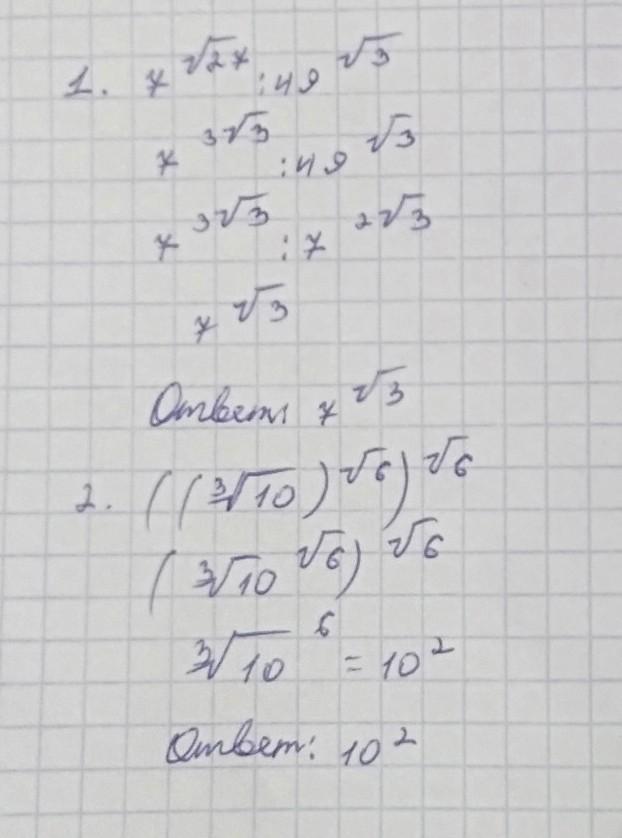 1. 7^√27 : 49^√3
7^3√3 : 49^√3
7^3√3 : 7^2√3
7^√3
Ответ: 7^√3
2. ((∛10)^√6)^√6
(∛10^√6)^√6
∛10^6 = 10^2
Ответ: 10^2